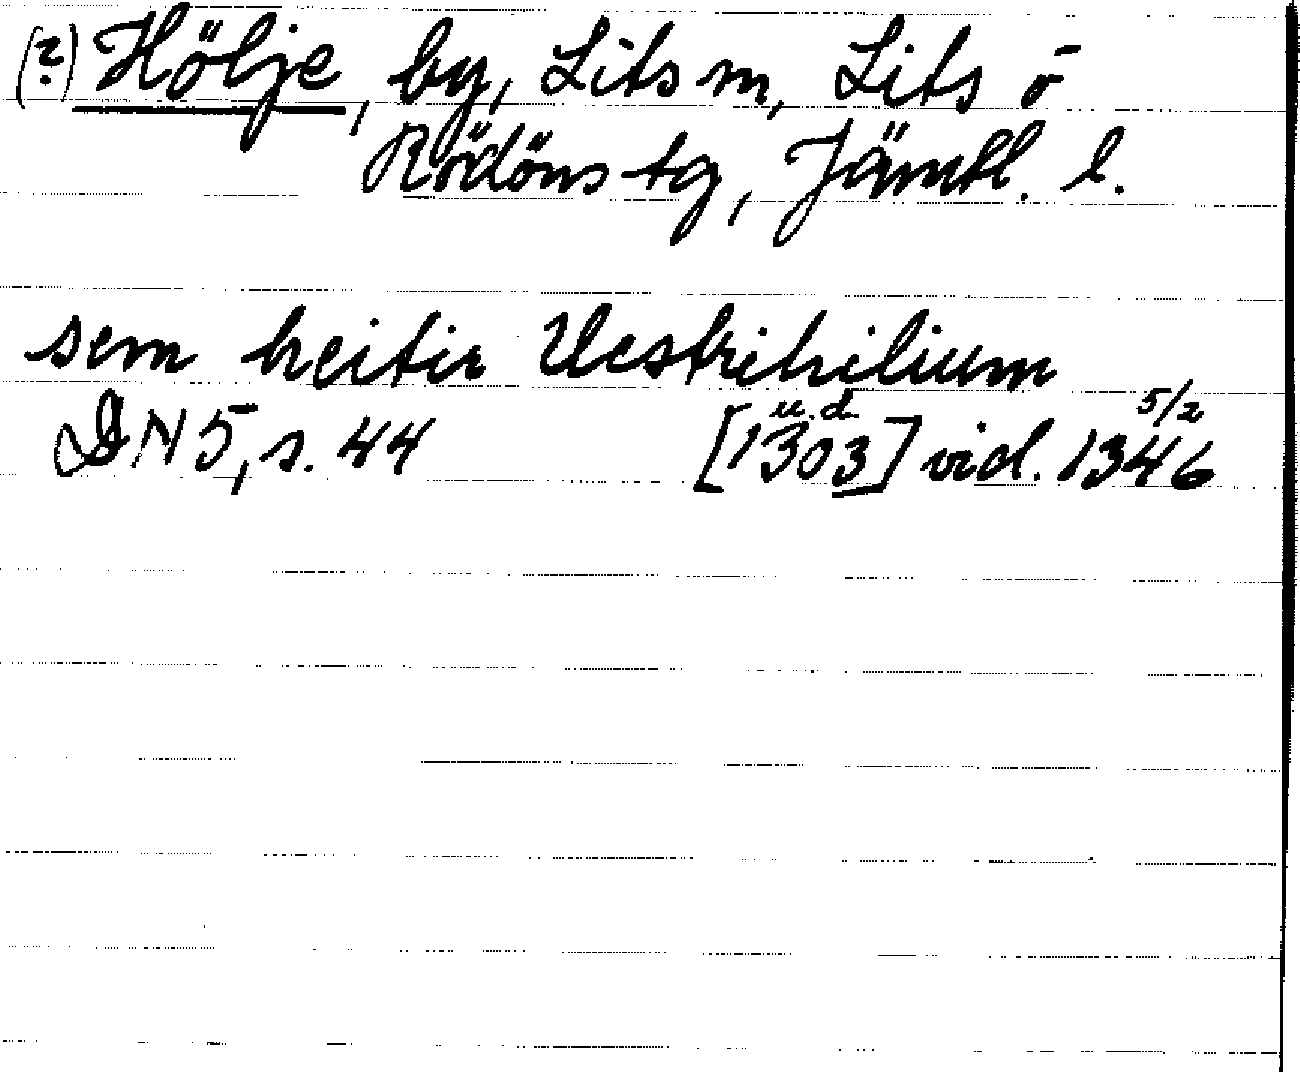 (?) Hölje, by, Lits m, Lits o
Rödöns tg, Jämtl. l.
sem heitir Uestrihilium
DN 5, s. 44 [1303] u.d. vid. 1346 5/2